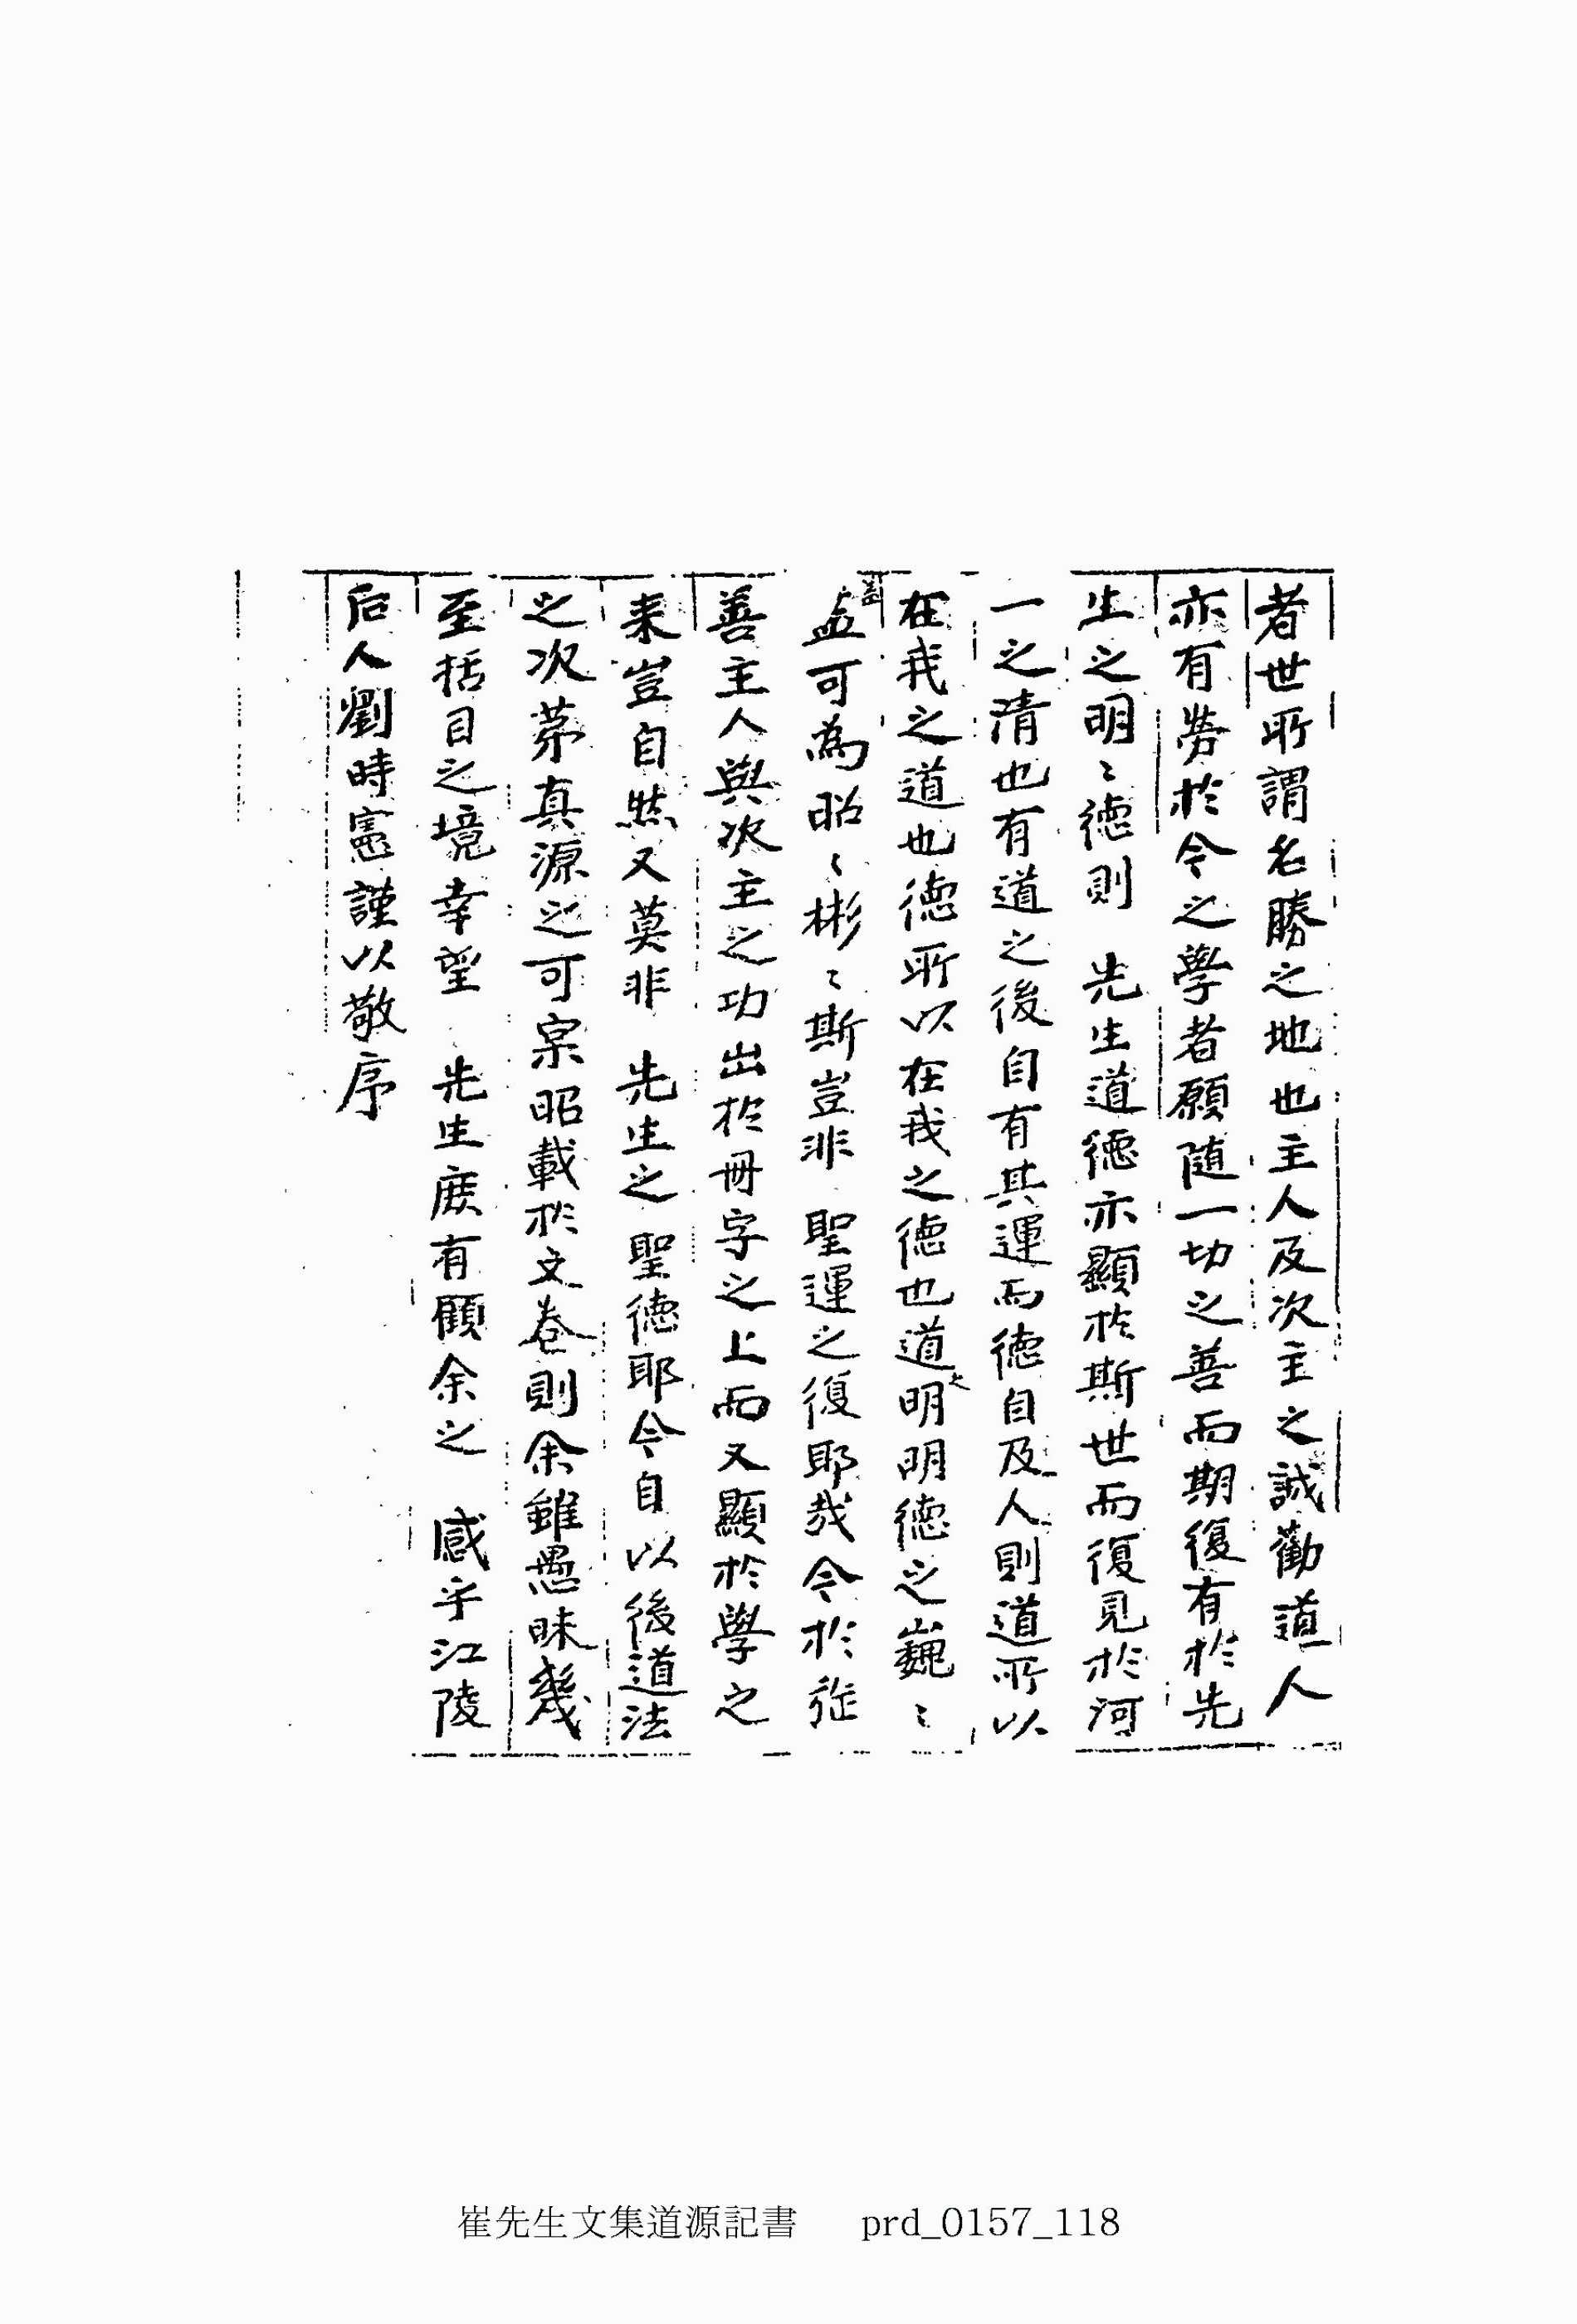 者世所謂名勝之地也主人及次主之誠勸道人
亦有勞於今之學者願随一切之善而期復有於先
生之明〻德則 先生道德亦顯於斯世而復見於河
一之清也有道之後自有其運而德自及人則道所以
在我之道也德所以在我之德也道之明明德之巍〻
盖盖可為昭〻彬〻斯豈非 聖運之復耶哉今於從
善主人與次主之功出於冊字之上而又顯於學之
来豈自然又莫非 先生之 聖德耶今自以後道法
之次茅真源之可宗昭載於文卷則余雖愚昧幾
至括目之境幸望 先生庶有顧余之 感乎江陵
后人劉時憲謹以敬序
崔先生文集道源記書 prd_0157_118